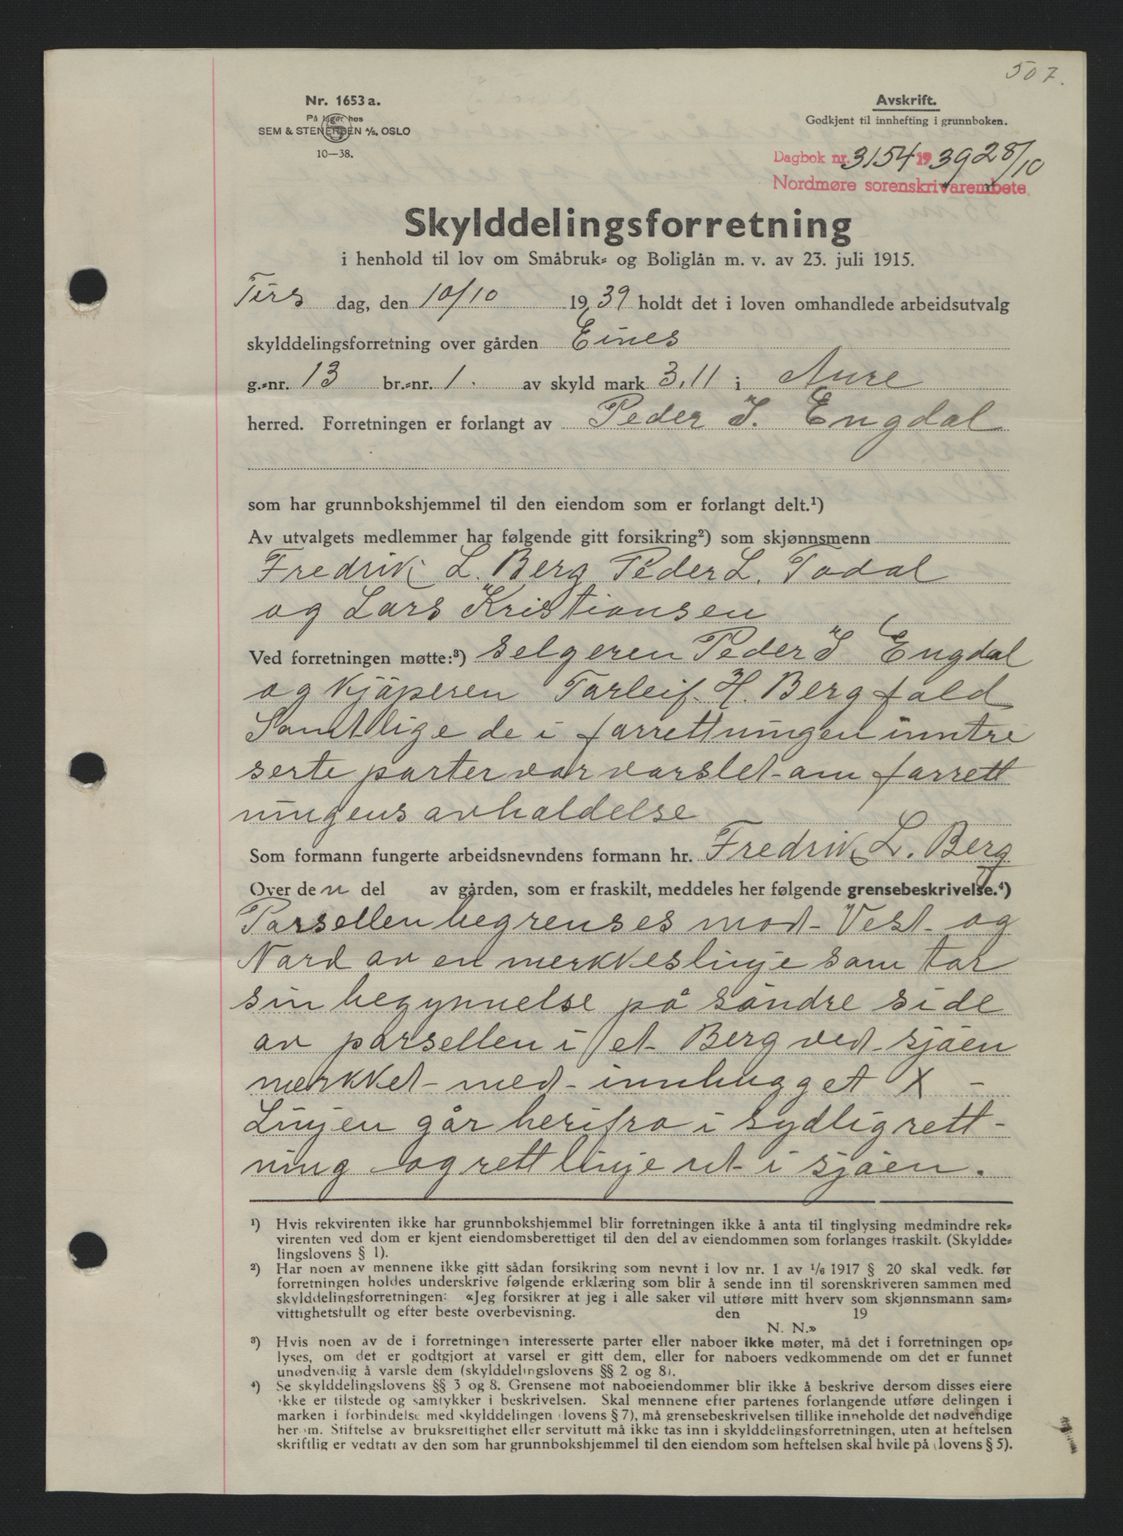 507.
Nr. 1653a.
På lager hos
SEM & STENERSEN A/S, OSLO
10–38.
Avskrift.
Godkjent til innhefting i grunnboken.
Dagbok nr. 3154 1939 28/10
Nordmøre sorenskrivarembete
Skylddelingsforretning
i henhold til lov om Småbruk- og Boliglån m. v. av 23. juli 1915.
Tirsdag, den 10/10 1939 holdt det i loven omhandlede arbeidsutvalg
skylddelingsforretning over gården Eines
g.-nr. 13 br.-nr. 1. av skyld mark 3,11 i Aure
herred. Forretningen er forlangt av Peder I. Engdal
som har grunnbokshjemmel til den eiendom som er forlangt delt.¹)
Av utvalgets medlemmer har følgende gitt forsikring²) som skjønnsmenn
Fredrik L. Berg Peder L. Todal
og Lars Kristiansen
Ved forretningen møtte:³) selgeren Peder I Engdal
og kjøperen Torleif H. Berg fald
Samtlige de i forrettningen inntre
serte parter var varslet om forrett
ningens avholdelse
Som formann fungerte arbeidsnevndens formann hr. Fredrik L. Berg
Over den del av gården, som er fraskilt, meddeles her følgende grensebeskrivelse.⁴)
Parsellen begrenses mod Vest og
Nord av en merkkeslinje som tar
sin begynnelse på søndre side
av parsellen i et Berg ved sjøen
merkket med innhugget X –
Linjen går herifra i sydlig rett-
ning og rett linje ut i sjøen.
¹) Hvis rekvirenten ikke har grunnbokshjemmel blir forretningen ikke å anta til tinglysing medmindre rek-
virenten ved dom er kjent eiendomsberettiget til den del av eiendommen som forlanges fraskilt. (Skyldde-
lingslovens § 1).
²) Har noen av mennene ikke gitt sådan forsikring som nevnt i lov nr. 1 av 1/6 1917 § 20 skal vedk. før
forretningen holdes underskrive følgende erklæring som blir å sende inn til sorenskriveren sammen med
skylddelingsforretningen: «Jeg forsikrer at jeg i alle saker vil utføre mitt hverv som skjønnsmann sam-
vittighetsfullt og efter beste overbevisning. den 19
N. N.»
³) Hvis noen av de i forretningen interesserte parter eller naboer ikke møter, må det i forretningen op-
lyses, om det er godtgjort at varsel er gitt dem, eller for naboers vedkommende om det er funnet
unødvendig å varsle dem (skylddelingslovens §§ 2 og 8).
⁴) Se skylddelingslovens §§ 3 og 8. Grensene mot naboeiendommer blir ikke å beskrive dersom disses eiere
ikke er tilstede og samtykker i beskrivelsen. Skal mennene efter partenes forlangende utføre delingen i
marken i forbindelse med skylddelingen (lovens § 7), må grensebeskrivelsen tillike inneholde det nødvendige
her om. Stiftelse av bruksrettighet eller servitutt må ikke tas inn i skylddelingsforretningen, uten at heftelsen
skriftlig er vedtatt av den som har grunnbokshjemmel til den eiendom som heftelsen skal hvile på (lovens § 5).